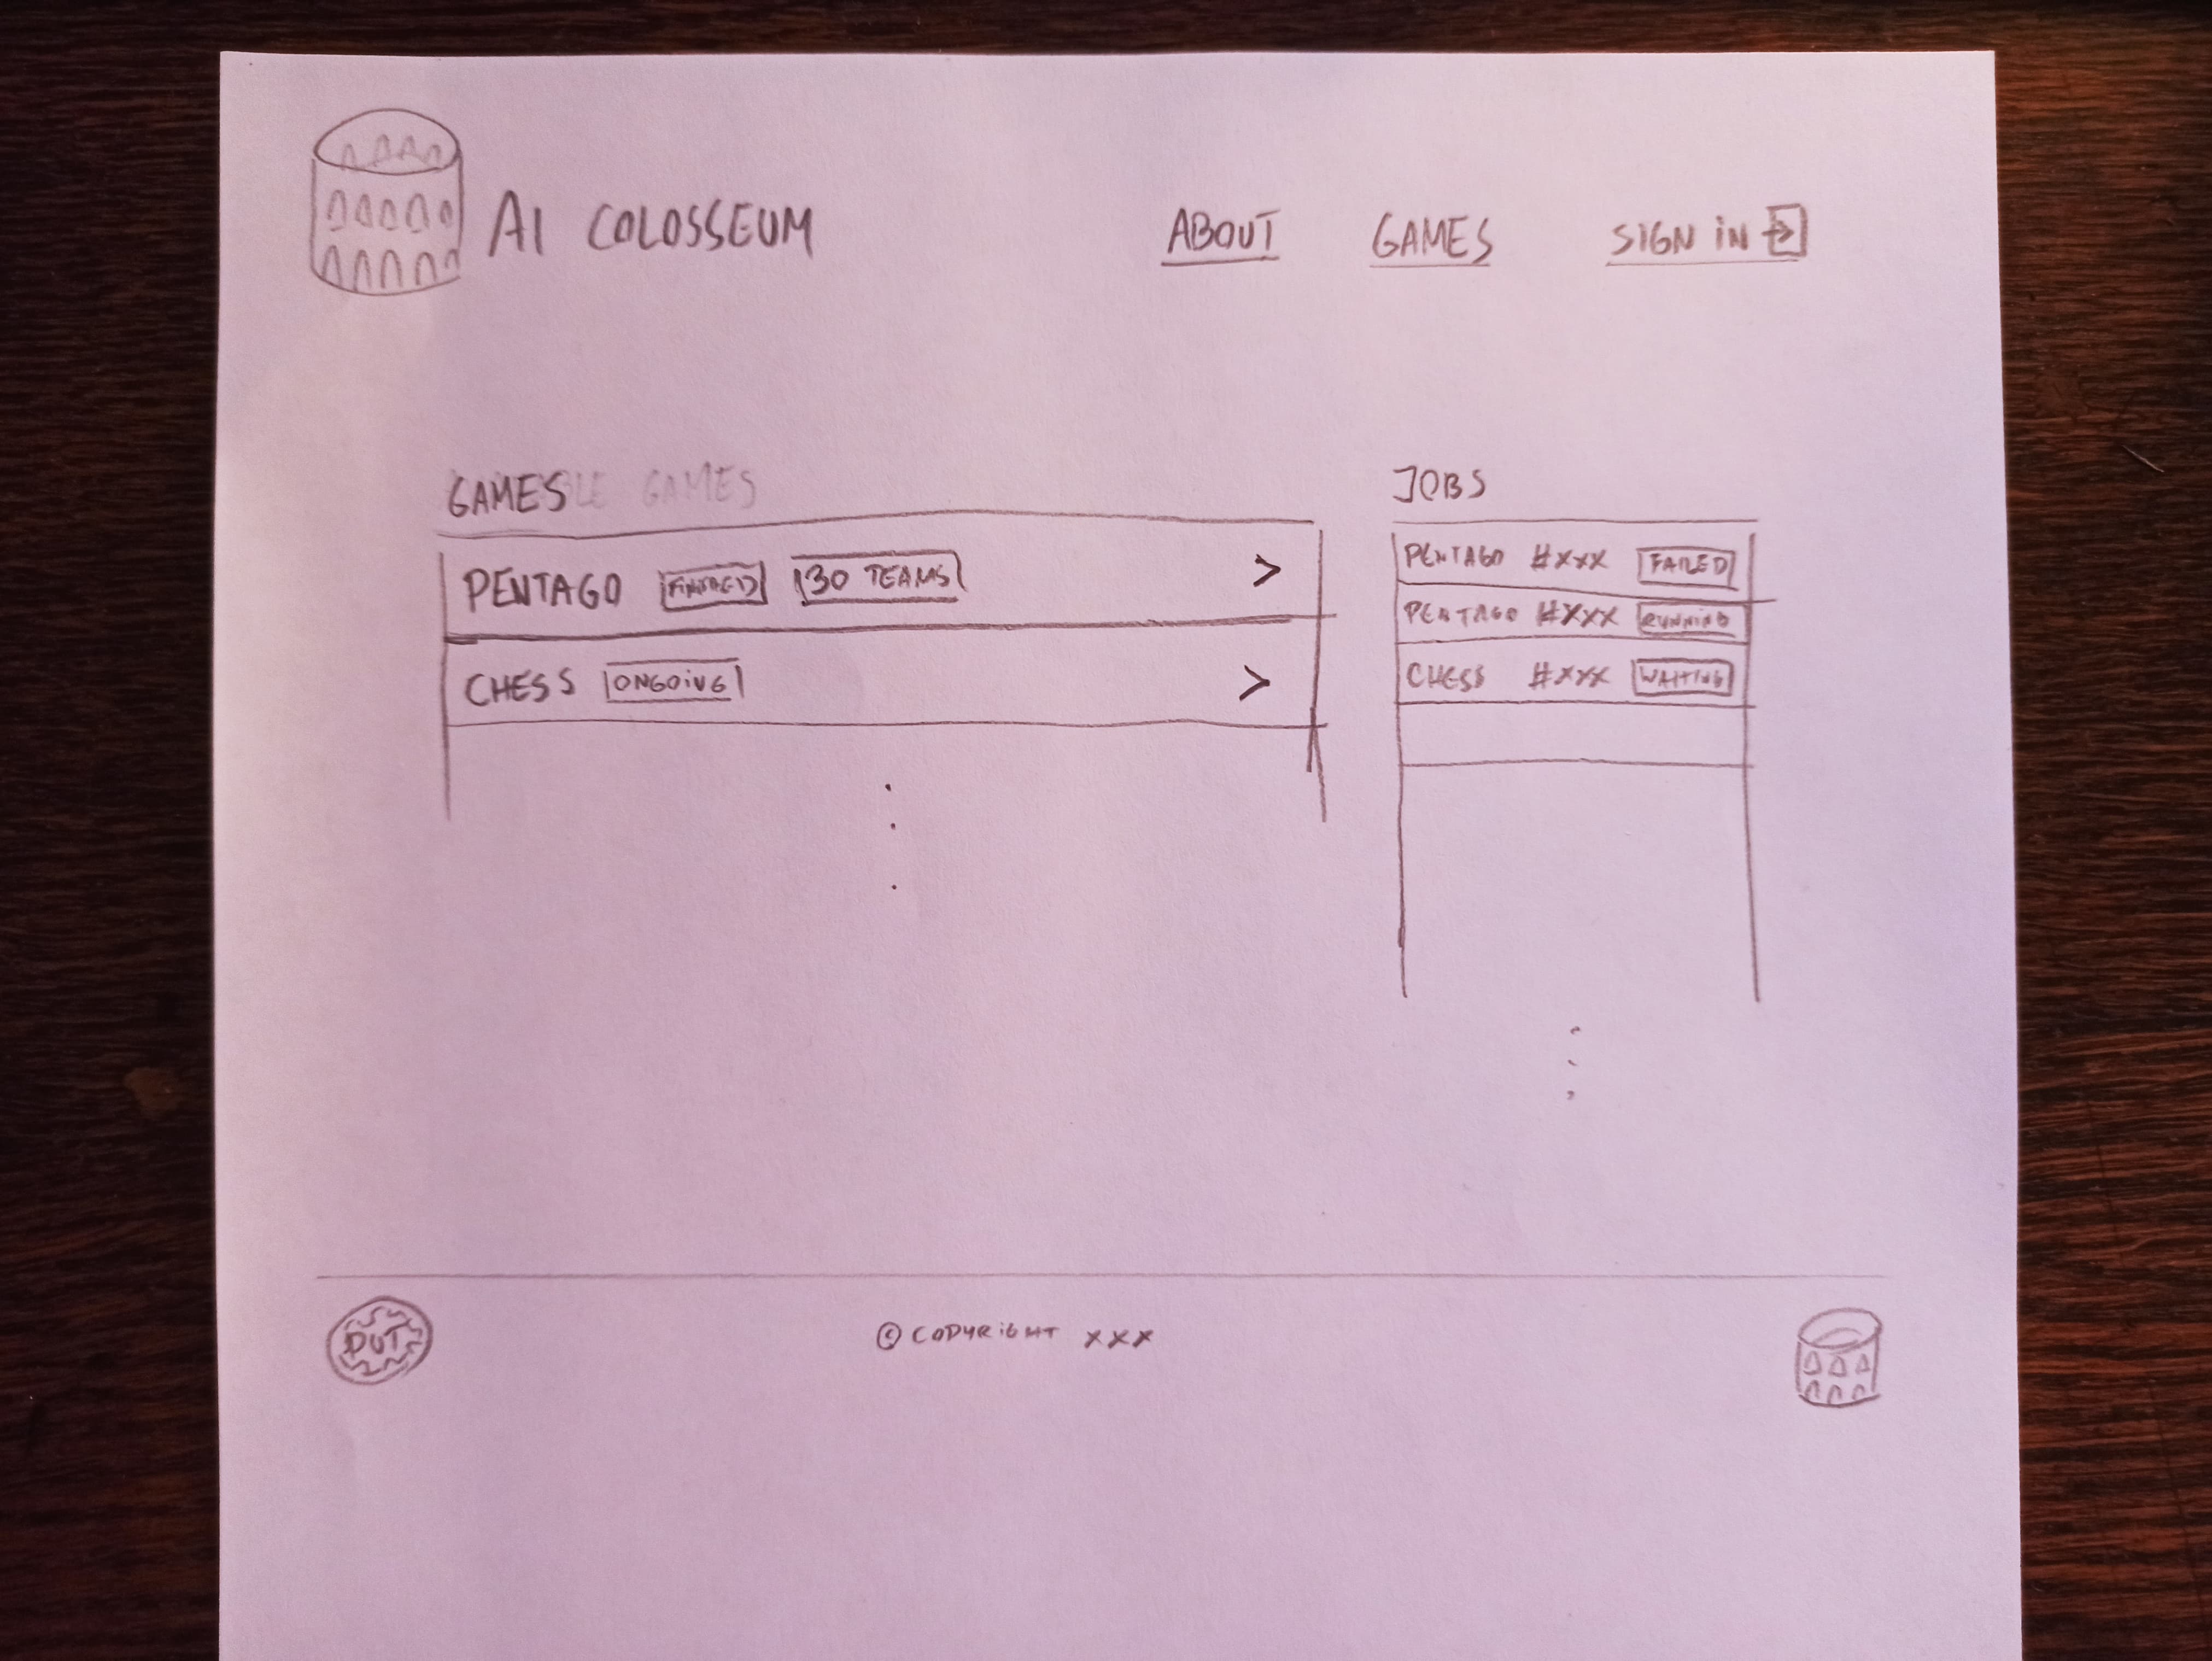 AI COLOSSEUM
ABOUT GAMES SIGN iN
GAMESBLE GAMES
PENTAGO 30 TEAMS >
CHESS ONGOiNG >
JOBS
PENTAGO #XXX FAILED
PENTAGO #XXX RUNNING
CHESS #XXX WAITING
PUT
© COPYRiGHT XXX